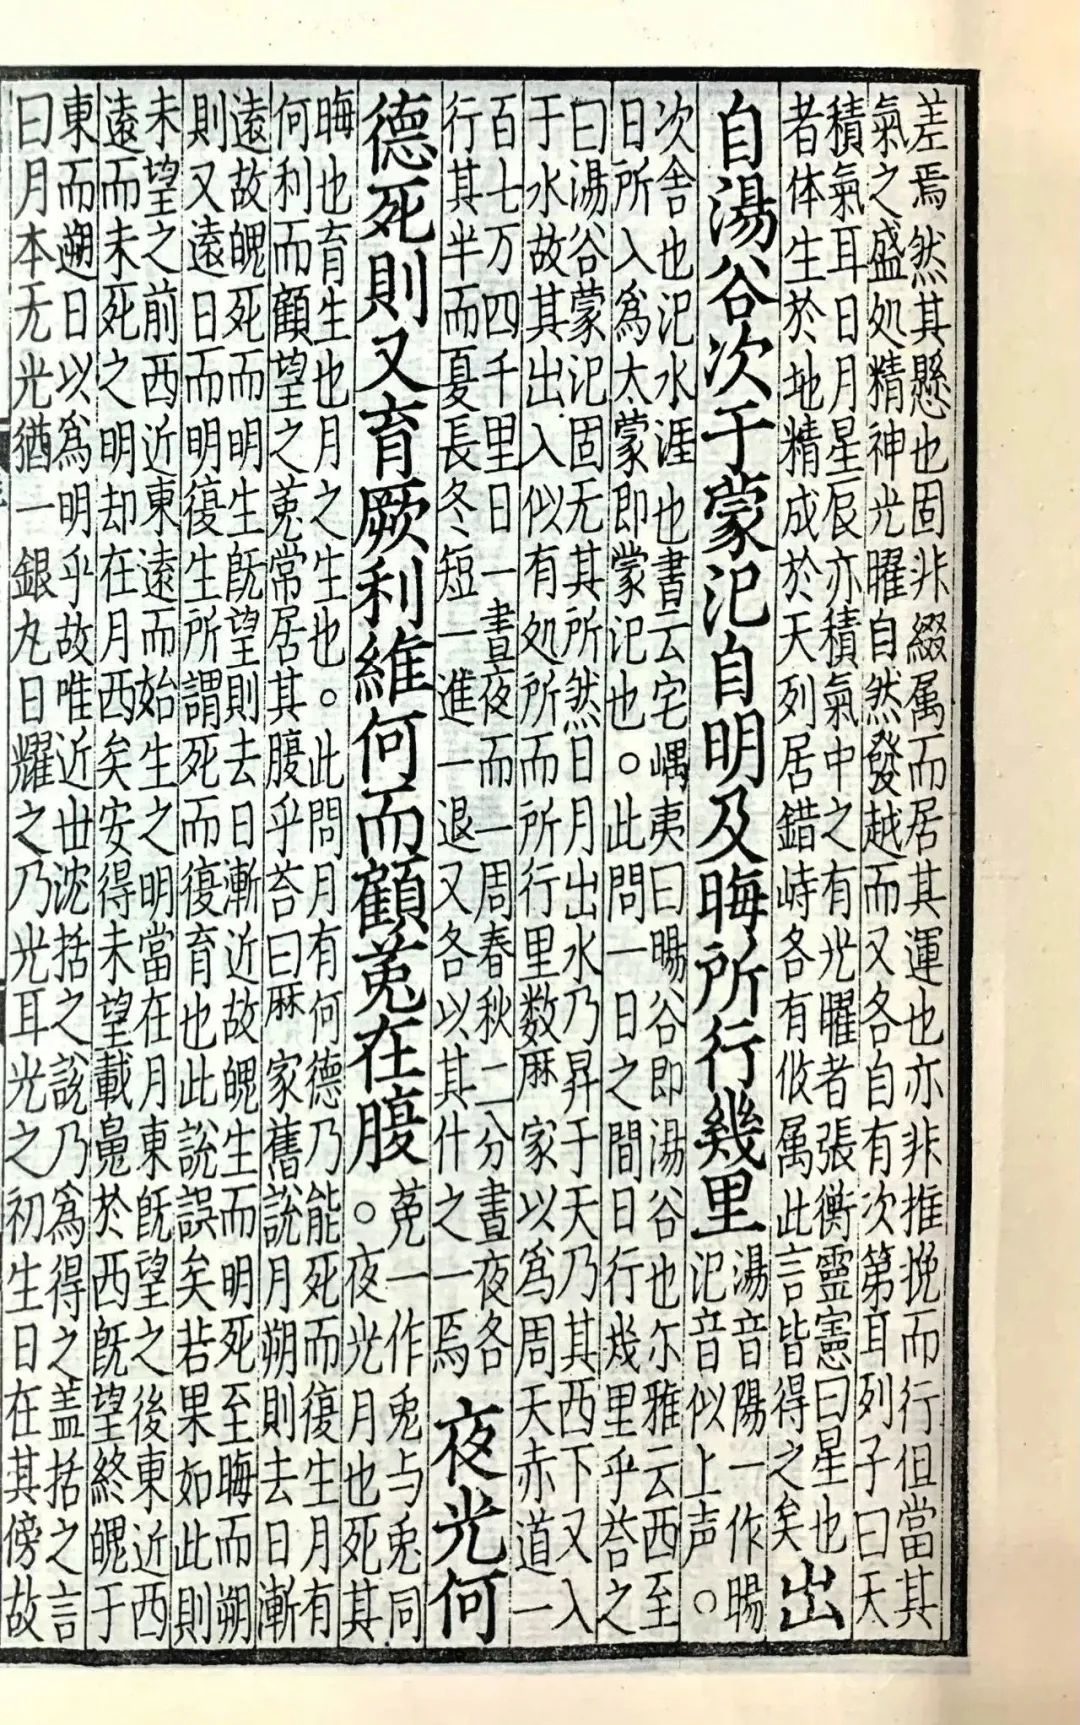 差焉然其懸也固非綴属而居其運也亦非推挽而行但當其
氣之盛処精神光曜自然發越而又各自有次第耳列子曰天
積氣耳日月星辰亦積氣中之有光曜者張衡靈憲曰星也
者体生於地精成於天列居錯峙各有攸属此言皆得之矣
出
自湯谷次于蒙汜自明及晦所行幾里
湯音陽一作暘
汜音似上声。
次舍也汜水涯也書云宅嵎夷曰暘谷即湯谷也尔雅云西至
日所入爲太蒙即蒙汜也。此問一日之間日行幾里乎荅之
曰湯谷蒙汜固无其所然日月出水乃昇于天乃其西下又入
于水故其出入似有処所而所行里数厤家以爲周天赤道一
百七万四千里日一晝夜而一周春秋二分晝夜各
行其半而夏長冬短一進一退又各以其什之一焉
夜光何
德死則又育厥利維何而顧菟在腹
菟一作兎与兎同
。夜光月也死其
晦也育生也月之生也。此問月有何德乃能死而復生月有
何利而顧望之菟常居其腹乎荅曰厤家舊說月朔則去日漸
遠故魄死而明生既望則去日漸近故魄生而明死至晦而朔
則又遠日而明復生所謂死而復育也此說誤矣若果如此則
未望之前西近東遠而始生之明當在月東既望之後東近西
遠而未死之明却在月西矣安得未望載魄於西既望終魄于
東而遡日以爲明乎故唯近世沈括之說乃爲得之盖括之言
曰月本无光猶一銀丸日耀之乃光耳光之初生日在其傍故